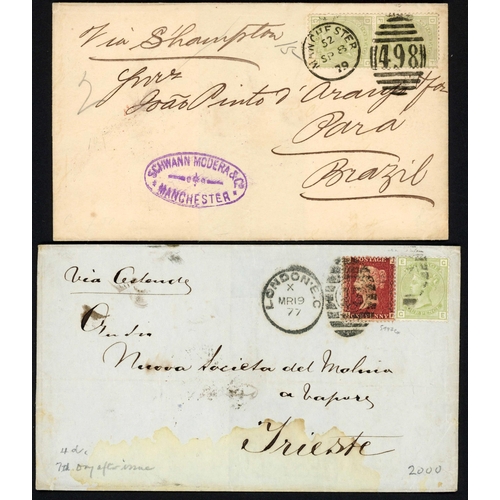 Via S'hampton
MANCHESTER
52
SP 8
79
498
João Pinto d'Araujo
Para
Brazil
SCHWANN MODERA & Co
MANCHESTER
Via Ostende
LONDON·E.C
X
MR 19
77
POSTAGE
PENNY
Nuova Societa del Molino
a Vapore
Trieste
4d.
7th Day after issue
2000